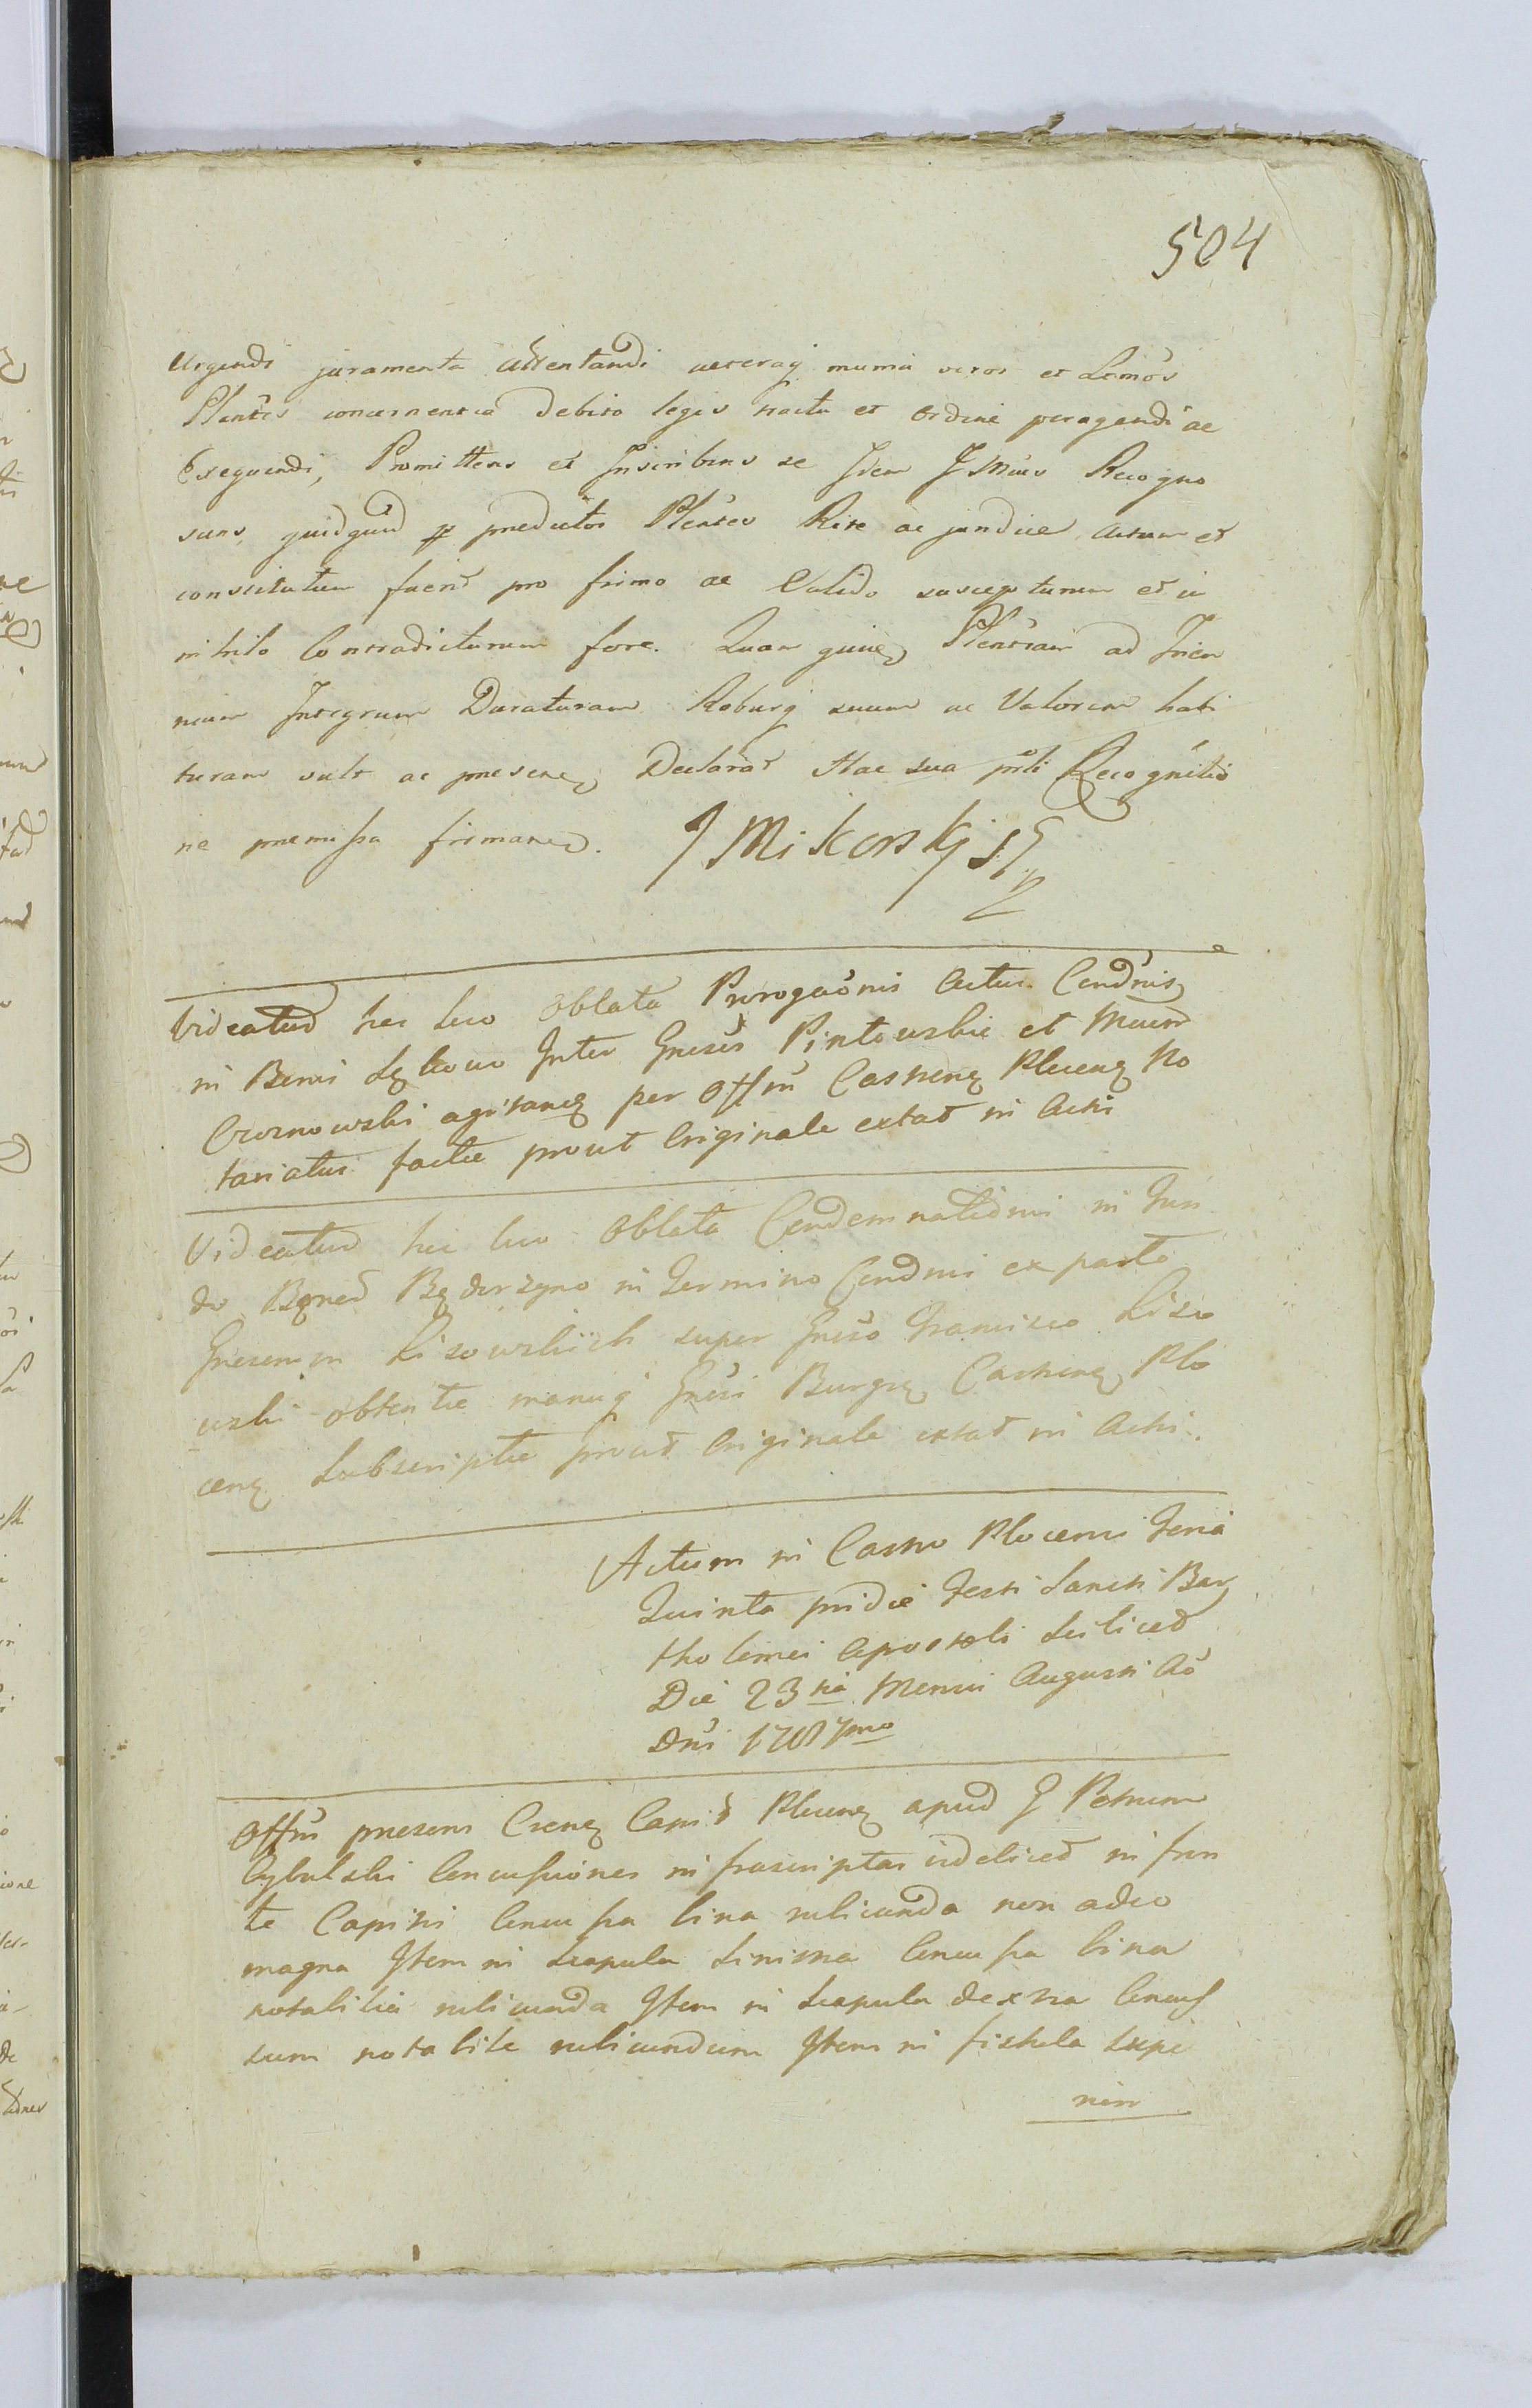 504
Urgendi juramenta attentandi caeteraq munia veros et Lgmos
Plentes concernentia debito legis tractu et ordine peragendi ac
Exequendi, Promittens et Inscribens se Idem J Mgcus Recogno
scens, quidquid p praedictos Plentes Rite ac juridice actum et
constitutum fuerit pro firmo ac Valido suscepturum et in
nihilo Contradicturum fore. Quam quidem Plentiam ad Trien
nium Integrum Duraturam Roburq suum ac Valorem habi
turam vult ac praesenc Declarat Hac sua pnti Recognitio
ne praemissa firmanc. J Mikorskj
Videatur hic loco Oblata Prorogaonis Actus Condnis
in Bonis Inter Gnosos Pintowskie et
Czornowski agitanc per Offm Castrenc Plocenc No
tariatus factae prout Originale extat in Actis
Videatur hic loco Oblata Condemnationis in Fun
do Bonor in Termino Condnis ex parte
Gnosorum Lisowskich super Gnoso Francisco Liso
wski obtentae manuq Gnosi Burgr Castrenc Plo
cenc Subscriptae prout Originale extat in Actis.
Actum in Castro Plocensi Feria
Quinta pridie Festi Sancti Bar
tholomei Apostoli Scilicet
Die 23tia Mensis Augusti Ao
Dni 1787mo
Offm praesens Crenc Capit Plocenc apud G Petrum
Cybulski Concussiones infrascriptas videlicet in fron
te Capitis Concussa bina rubicunda non adeo
magna Item in Scapula Sinistra Concussa bina
notabilia rubicunda Item in Scapula dextra Concus
sum notabile rubicundum Item in fistula supe
rior